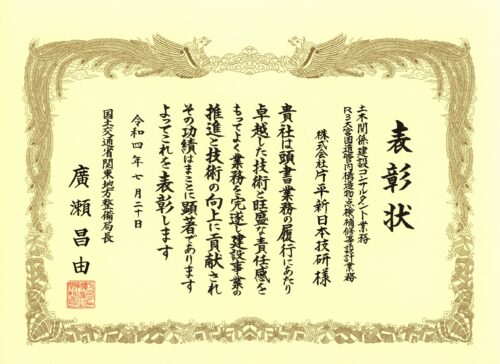 表彰状
土木関係建設コンサルタント業務
R3大宮国道管内構造物点検補修等設計業務
株式会社片平新日本技研様
貴社は頭書業務の履行にあたり
卓越した技術と旺盛な責任感を
もってよく業務を完遂し建設事業の
推進と技術の向上に貢献され
その功績はまことに顕著であります
よってこれを表彰します
令和四年七月二十日
国土交通省関東地方整備局長
廣瀬昌由